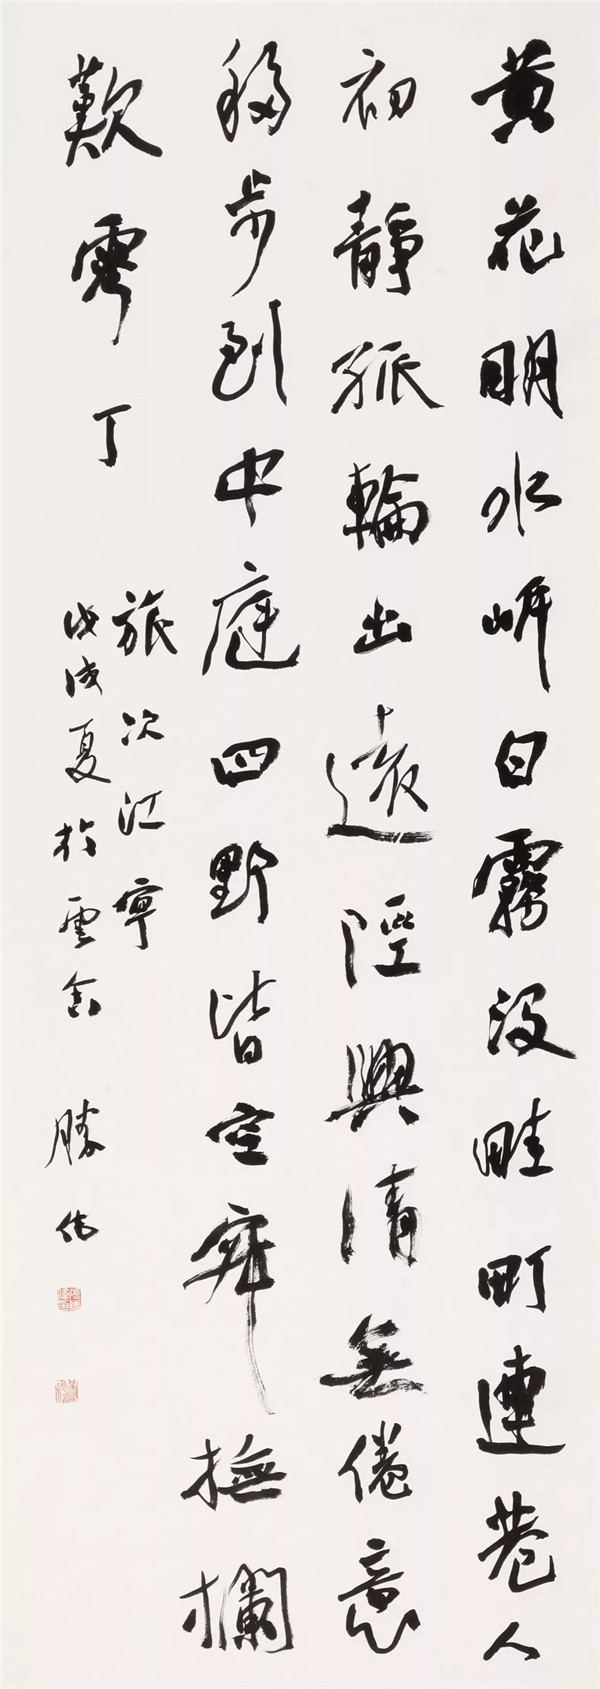 黄花明水岸白霧没畦町連巷人
初靜孤輪出遠陘興清無倦意
移步到中庭四野皆空寂撫欄
歎零丁
旅次江寧
戊戌夏於雲舍 勝